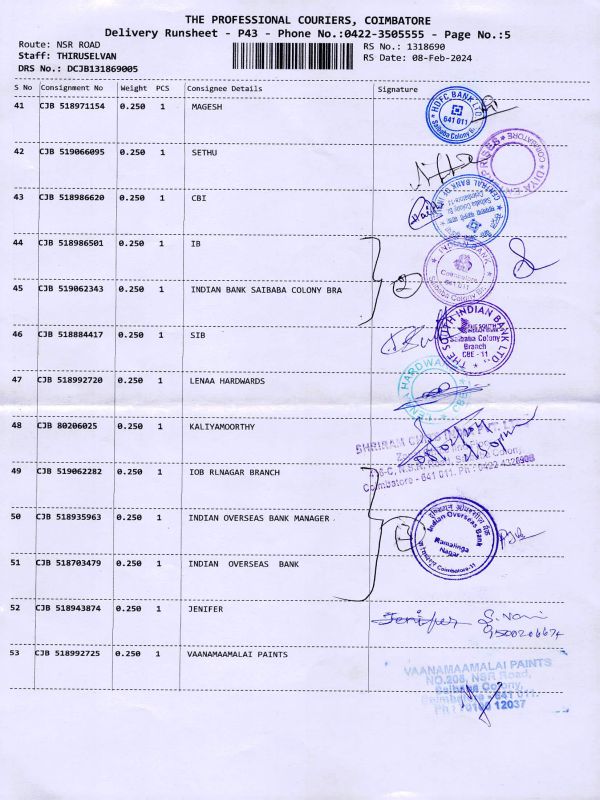 THE PROFESSIONAL COURIERS, COIMBATORE
Delivery Runsheet - P43 - Phone No.:0422-3505555 - Page No.:5
Route: NSR ROAD
RS No.: 1318690
Staff: THIRUSELVAN
RS Date: 08-Feb-2024
DRS No.: DCJB131869005
S No Consignment No Weight PCS Consignee Details Signature
41 CJB 518971154 0.250 1 MAGESH
HDFC BANK LTD
641 011
Saibaba Colony
42 CJB 519066095 0.250 1 SETHU
DIYA ENTERPRISES
COIMBATORE
43 CJB 518986620 0.250 1 CBI
CENTRAL BANK OF
Saibaba Colony
44 CJB 518986501 0.250 1 IB
641 011
Saibaba Colony
45 CJB 519062343 0.250 1 INDIAN BANK SAIBABA COLONY BRA
2
46 CJB 518884417 0.250 1 SIB
THE SOUTH INDIAN BANK LTD.
THE SOUTH
Saibaba Colony
Branch
CBE - 11
47 CJB 518992720 0.250 1 LENAA HARDWARDS
LENAA HARDWARE
48 CJB 80206025 0.250 1 KALIYAMOORTHY
SHRIRAM
Coimbatore - 641 011.
49 CJB 519062282 0.250 1 IOB RLNAGAR BRANCH
50 CJB 518935963 0.250 1 INDIAN OVERSEAS BANK MANAGER
इण्डियन ओवरसीज़ बैंक
Indian Overseas Bank
Ramalinga
Nagar
Coimbatore-11
51 CJB 518703479 0.250 1 INDIAN OVERSEAS BANK
52 CJB 518943874 0.250 1 JENIFER
Jenifer
9500206674
53 CJB 518992725 0.250 1 VAANAMAAMALAI PAINTS
VAANAMAAMALAI PAINTS
NO.208, NSR Road,
Saibaba Colony,
Coimbatore - 641 011.
12037